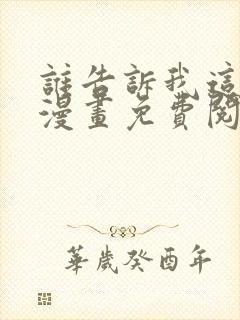 誰告訴我這
漫畫免費閱
華歲癸酉年